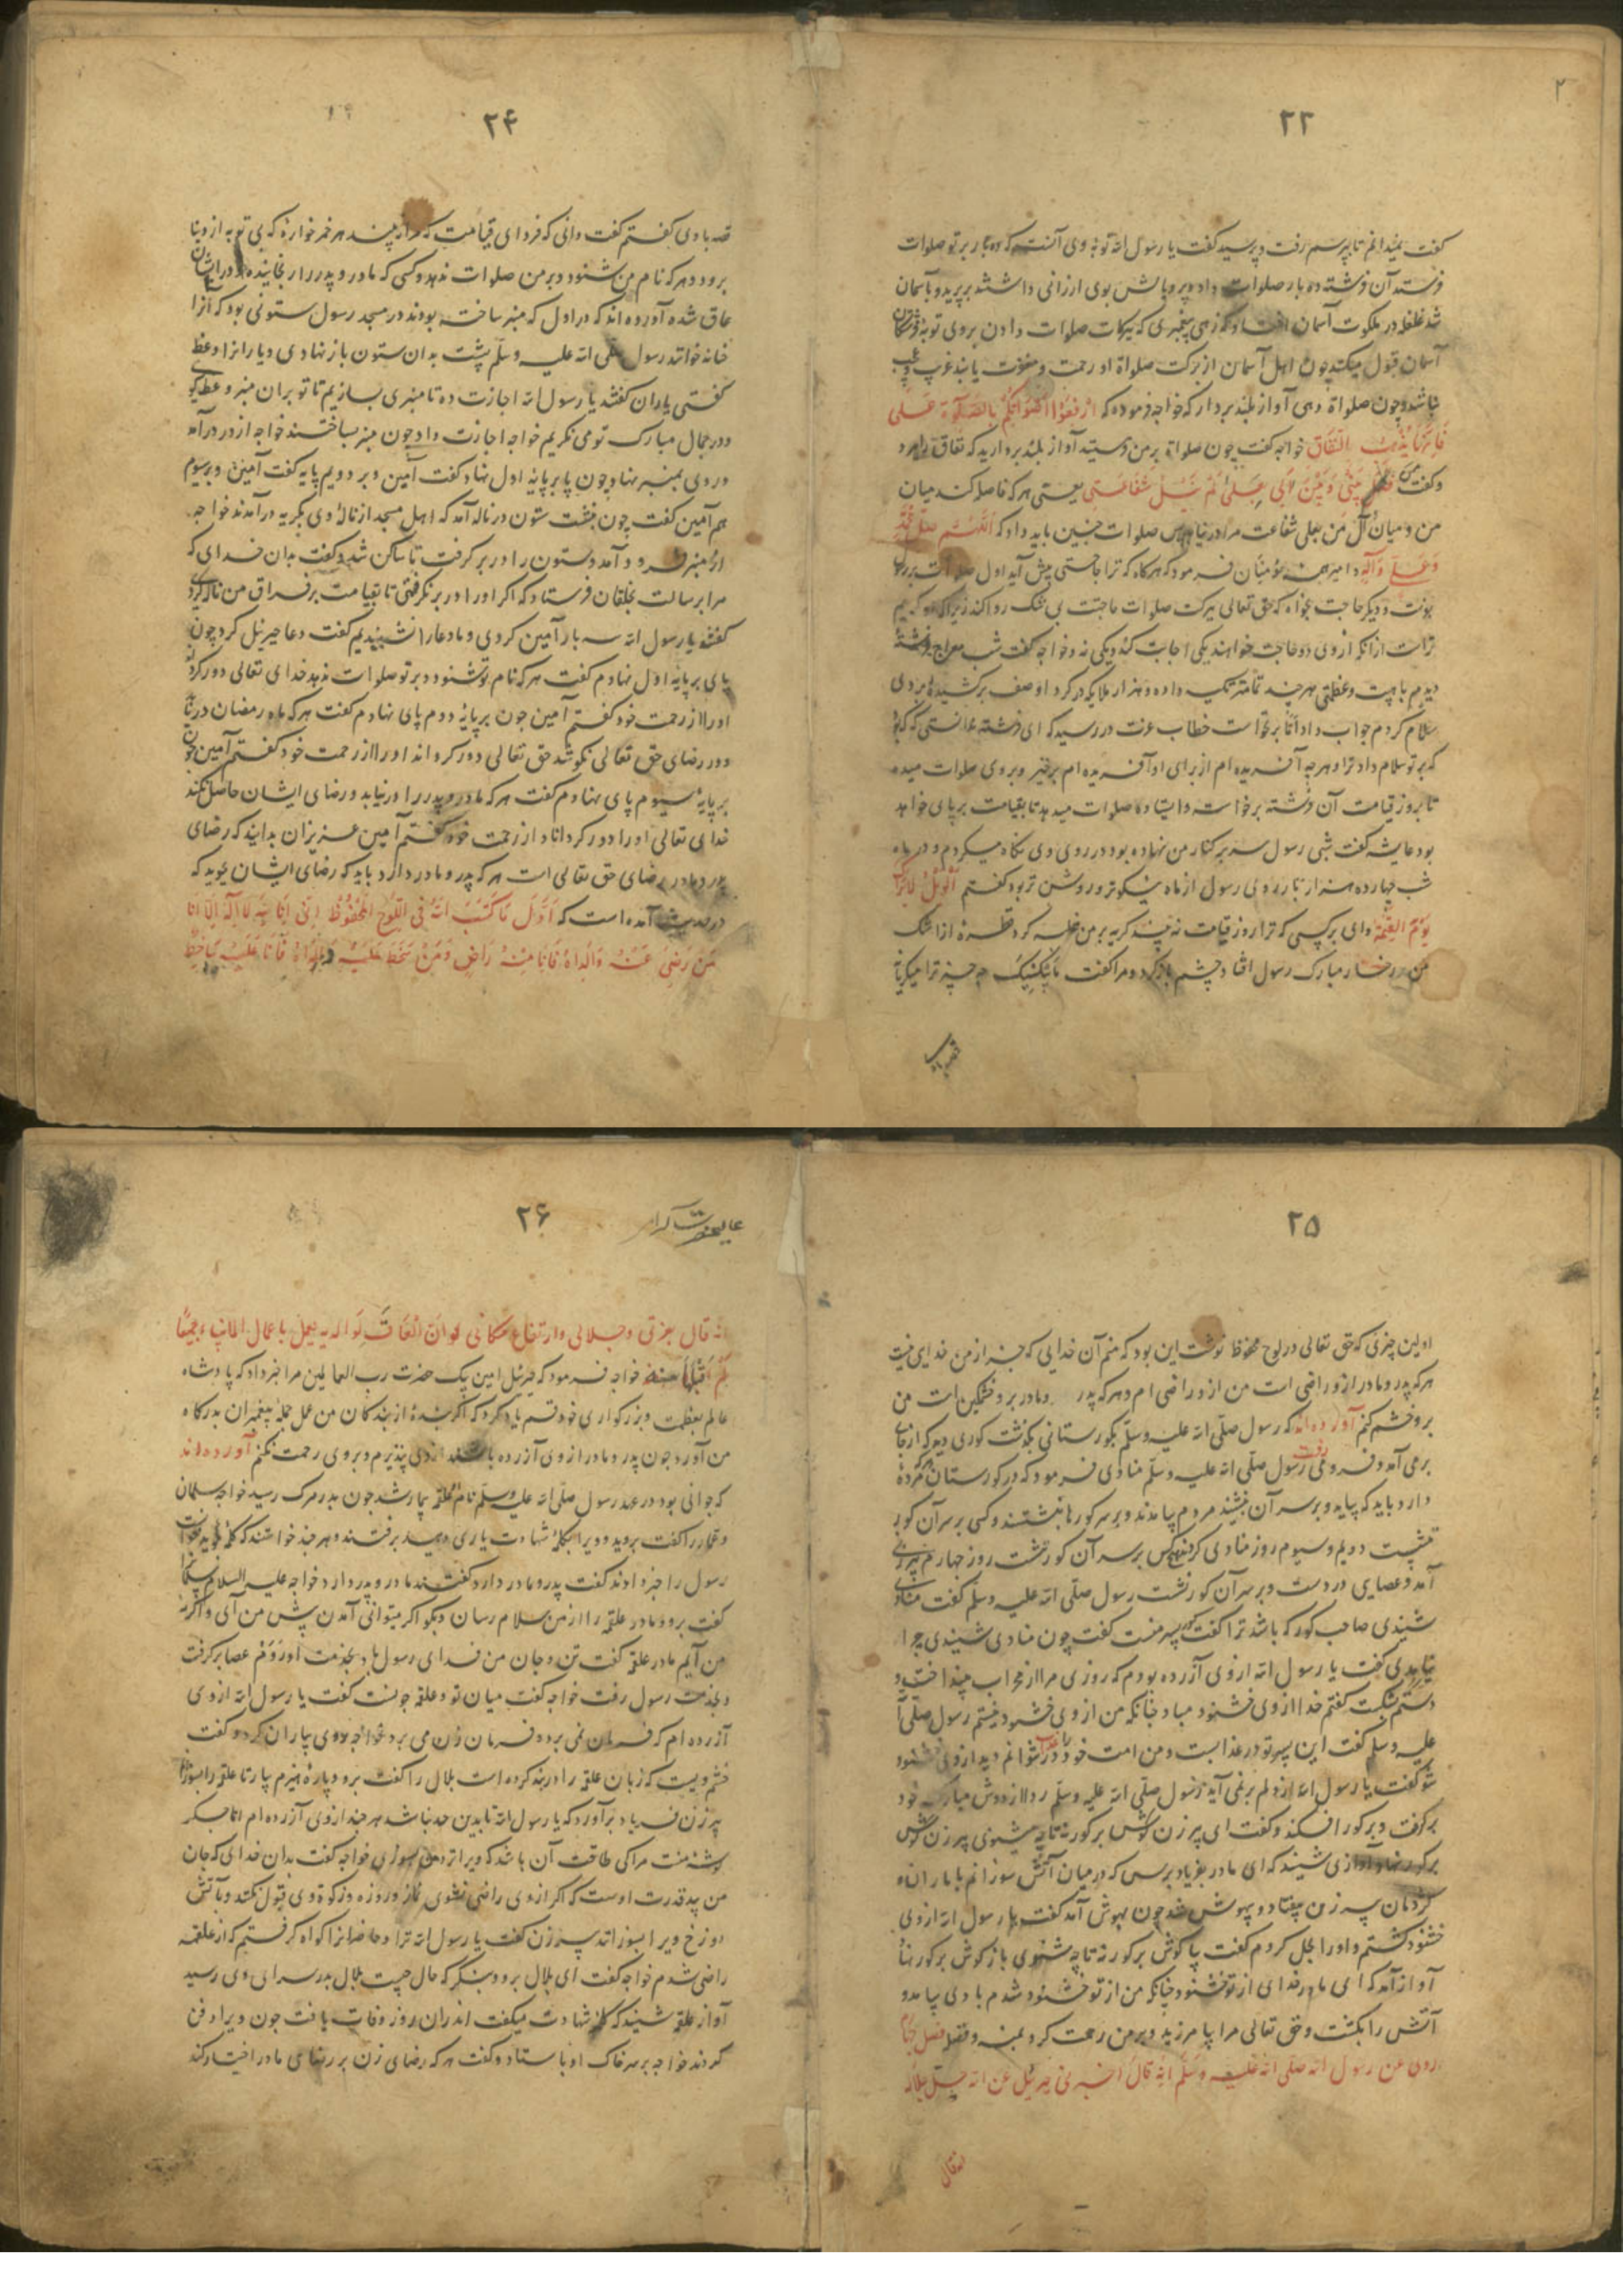 ۲۳
گفت نمیدانم تا بپرسم رفت و پرسید گفت یا رسول الله توبهٔ وی آنست که ده بار بر تو صلوات
فرستد آن فرشته ده بار صلوات داد و پر و بالش بوی ارزانی داشتند بر پرید و بآسمان
شد غلغله در ملکوت آسمان افتاد که زهی پیغمبری که ببرکات صلوات دادن بروی توبهٔ فرشتگان
آسمان قبول میکند چون اهل آسمان از برکت صلواة او رحمت و مغفرت یابند غریب و عجب
نباشد و چون صلواة دهی آواز بلند بردار که خواجه فرموده که ارفعوا اصواتکم بالصلوة علی
فانها یذهب بالنفاق خواجه گفت چون صلواة بر من فرستید آواز بلند بردارید که نفاق را ببرد
و گفت من فصل بینی و بین آلی بعلی لم ینل شفاعتی یعنی هر که فاصله کند میان
من و میان آل من بعلی شفاعت مرا در نیابد پس صلوات چنین باید داد که اللهم صل علی محمد
و علی وآله و امیر المؤمنان فرمود که هرگاه که ترا حاجتی پیش آید اول صلوات بر رسول
بفرست و دیگر حاجت بخواه که حق تعالی ببرکت صلوات حاجتت بی شک روا کند زیرا که او کریم
تر است از آنکه از وی دو حاجت خواهند یکی اجابت کند و یکی نه و خواجه گفت شب معراج فرشتهٔ
دیدم با هیبت و عظمتی هر چند تمامتر تکیه داده و هزار ملایکه در گرد او صف برکشیده بر وی
سلام کردم جواب داد اما بر نخاست خطاب عزت در رسید که ای فرشته ندانستی که که بود
که بر تو سلام داد ترا و هر چه آفریده ام از برای او آفریده ام برخیز و بر وی صلوات میده
تا بروز قیامت آن فرشته برخاست و ایستاده صلوات میدهد تا بقیامت بر پای خواهد
بود عایشه گفت شبی رسول سر بر کنار من نهاده بود در روی وی نگاه میکردم و در ماه
شب چهارده هزار بار روی رسول از ماه نیکوتر و روشن تر بود گفتم الویل لمن لایراک
یوم القیمة وای بر کسی که ترا روز قیامت نه بیند گریه بر من غلبه کرد قطرهٔ از اشک
من بر رخسار مبارک رسول افتاد چشم باز کرد و مرا گفت مایبکیک چه چیز ترا میگریاند
قصه با وی
۲۴
قصه با وی گفتم گفت دانی که فردای قیامت که مرا نه بیند هر خمر خوارهٔ که بی توبه از دنیا
برود و هر که نام من شنود و بر من صلوات ندهد و کسی که مادر و پدر را رنجانیده و در ایشان
عاق شده آورده اند که در اول که منبر ساخته بودند در مسجد رسول ستونی بود که آنرا
حنانه خوانند رسول صلی الله علیه وسلم پشت بدان ستون باز نهادی و یارانرا وعظ
گفتی یاران گفتند یا رسول الله اجازت ده تا منبری بسازیم تا تو بر آن منبر وعظ گویی
و در جمال مبارک تو می نگریم خواجه اجازت داد چون منبر بساختند خواجه از در در آمد
و روی بمنبر نهاد چون پا بر پایهٔ اول نهاد گفت آمین و بر دویم پایه گفت آمین و بر سیوم
هم آمین گفت چون بنشست ستون در ناله آمد که اهل مسجد از نالهٔ وی بگریه در آمدند خواجه
از منبر فرود آمد و ستون را در بر گرفت تا ساکن شد و گفت بدان خدای که
مرا برسالت بخلقان فرستاد که اگر او را در بر نگرفتی تا بقیامت بر فراق من ناله کردی
گفتند یا رسول الله سه بار آمین کردی و ما دعا را نشنیدیم گفت دعا جبرئیل کرد چون
پای بر پایهٔ اول نهادم گفت هر که نام تو شنود و بر تو صلوات ندهد خدای تعالی دور کرداند
او را از رحمت خود گفتم آمین چون بر پایهٔ دوم پای نهادم گفت هر که ماه رمضان دریابد
و در رضای حق تعالی نکوشد حق تعالی دور کرداند او را از رحمت خود گفتم آمین چون
بر پایهٔ سیوم پای نهادم گفت هر که مادر و پدر را دریابد و رضای ایشان حاصل نکند
خدای تعالی او را دور کرداناد از رحمت خود گفتم آمین عزیزان بدانید که رضای
پدر و مادر رضای حق تعالی است هر که پدر و مادر دارد باید که رضای ایشان جوید که
در حدیث آمده است که اول ما کتب الله فی اللوح المحفوظ انی انا الله لا اله الا انا
من رضی عنه والداه فانا منه راض ومن سخط علیه والداه فانا علیه ساخط
۲۵
اولین چیزی که حق تعالی در لوح محفوظ نوشت این بود که منم آن خدایی که جز از من خدای نیست
هر که پدر و مادر از و راضی است من از و راضی ام و هر که پدر و مادر بر و خشمگین است من
بر و خشم کنم آورده اند که رسول صلی الله علیه وسلم بگورستانی بگذشت گوری دید که از جای
بر می آمد و فرو می رفت رسول صلی الله علیه وسلم منادی فرمود که در گورستان هر که مردهٔ
دارد باید که بیاید و بر سر آن بنشیند مردم بیامدند و بر سر گورها بنشستند و کسی بر سر آن گور
ننشست دویم و سیوم روز منادی کردند هیچکس بر سر آن گور ننشست روز چهارم پیر زنی
آمد و عصایی در دست و بر سر آن گور نشست رسول صلی الله علیه وسلم گفت منادی
شنیدی صاحب گور که باشد ترا گفت گور پسر منست گفت چون منادی شنیدی چرا
نیامدی گفت یا رسول الله از وی آزرده بودم که روزی مرا از محراب بینداخت و
دستم شکست گفتم خدا از وی خشنود مباد چنانکه من از وی خشنود نیستم رسول صلی الله
علیه وسلم گفت این پسر تو در عذابست و من امت خود را در عذاب نتوانم دید از وی خشنود
شو گفت یا رسول الله از دلم بر نمی آید رسول صلی الله علیه وسلم ردا از دوش مبارک خود
برگرفت و بر گور افکند و گفت ای پیر زن گوش بر گور نه تا چه شنوی پیر زن گوش
بر گور نهاد آوازی شنید که ای مادر بفریادم برس که در میان آتش سوزانم
پیر زن بیفتاد و بیهوش شد چون بهوش آمد گفت یا رسول الله از وی
خشنود گشتم و او را بحل کردم گفت بیا گوش بر گور نه تا چه شنوی باز گوش بر گور نهاد
آواز آمد که ای مادر خدای از تو خشنود چنانکه من از تو خشنود شدم بادی بیامد و
آتش را بکشت و حق تعالی مرا بیامرزید و بر من رحمت کرد بمنه و فضله فصل چهارم
روی عن رسول الله صلی الله علیه وسلم انه قال اخبرنی جبرئیل عن الله جل جلاله
انه قال
۲۶
عالیحضرت
انه قال بعزتی و جلالی وارتفاع مکانی لو ان العاق لوالدیه یعمل باعمال الانبیاء جمیعا
لم اقبلها منه خواجه فرمود که جبرئیل امین پیک حضرت رب العالمین مرا خبر داد که پادشاه
عالم بعظمت و بزرگواری خود قسم یاد کرد که اگر بندهٔ از بندکان من عمل جملهٔ پیغمبران بدرگاه
من آورد چون پدر و مادر از وی آزرده باشند از وی نپذیرم و بر وی رحمت نکنم آورده اند
که جوانی بود در عهد رسول صلی الله علیه وسلم نام علقمه بیمار شد چون بدر مرگ رسید خواجه سلمان
و عمار را گفت بروید و ویرا بکلمهٔ شهادت یاری دهید برفتند و هر چند خواستند که کلمه بگوید نتوانست
رسول را خبر دادند گفت پدر و مادر دارد گفتند مادر دارد خواجه علیه السلام سلمانرا
گفت برو و مادر علقمه را از من سلام رسان و بگو اگر میتوانی آمدن پیش من آی و اگر نه
من آیم مادر علقمه گفت تن و جان من فدای رسول باد بخدمت او روم عصا برگرفت
و بخدمت رسول رفت خواجه گفت میان تو و علقمه چونست گفت یا رسول الله از وی
آزرده ام که فرمان نمی برد و فرمان زن می برد خواجه روی بیاران کرد و گفت
خشم ویست که زبان علقمه را در بند کرده است بلال را گفت برو و پارهٔ هیزم بیار تا علقمه را بسوزانم
پیر زن فریاد برآورد که یا رسول الله تا بدین حد نباشد هر چند از وی آزرده ام اما جگر
گوشهٔ منست مرا کی طاقت آن باشد که ویرا تو بسوزی خواجه گفت بدان خدای که جان
من بید قدرت اوست که اگر از وی راضی نشوی نماز و روزه و زکوة وی قبول نکند و بآتش
دوزخ ویرا بسوزاند پیر زن گفت یا رسول الله ترا و حاضرانرا گواه گرفتم که از علقمه
راضی شدم خواجه گفت ای بلال برو و بنگر که حال چیست بلال بدر سرای وی رسید
آواز علقمه شنید که کلمهٔ شهادت میگفت اندران روز وفات یافت چون ویرا دفن
کردند خواجه بر سر خاک او بایستاد و گفت هر که رضای زن بر رضای مادر اختیار کند